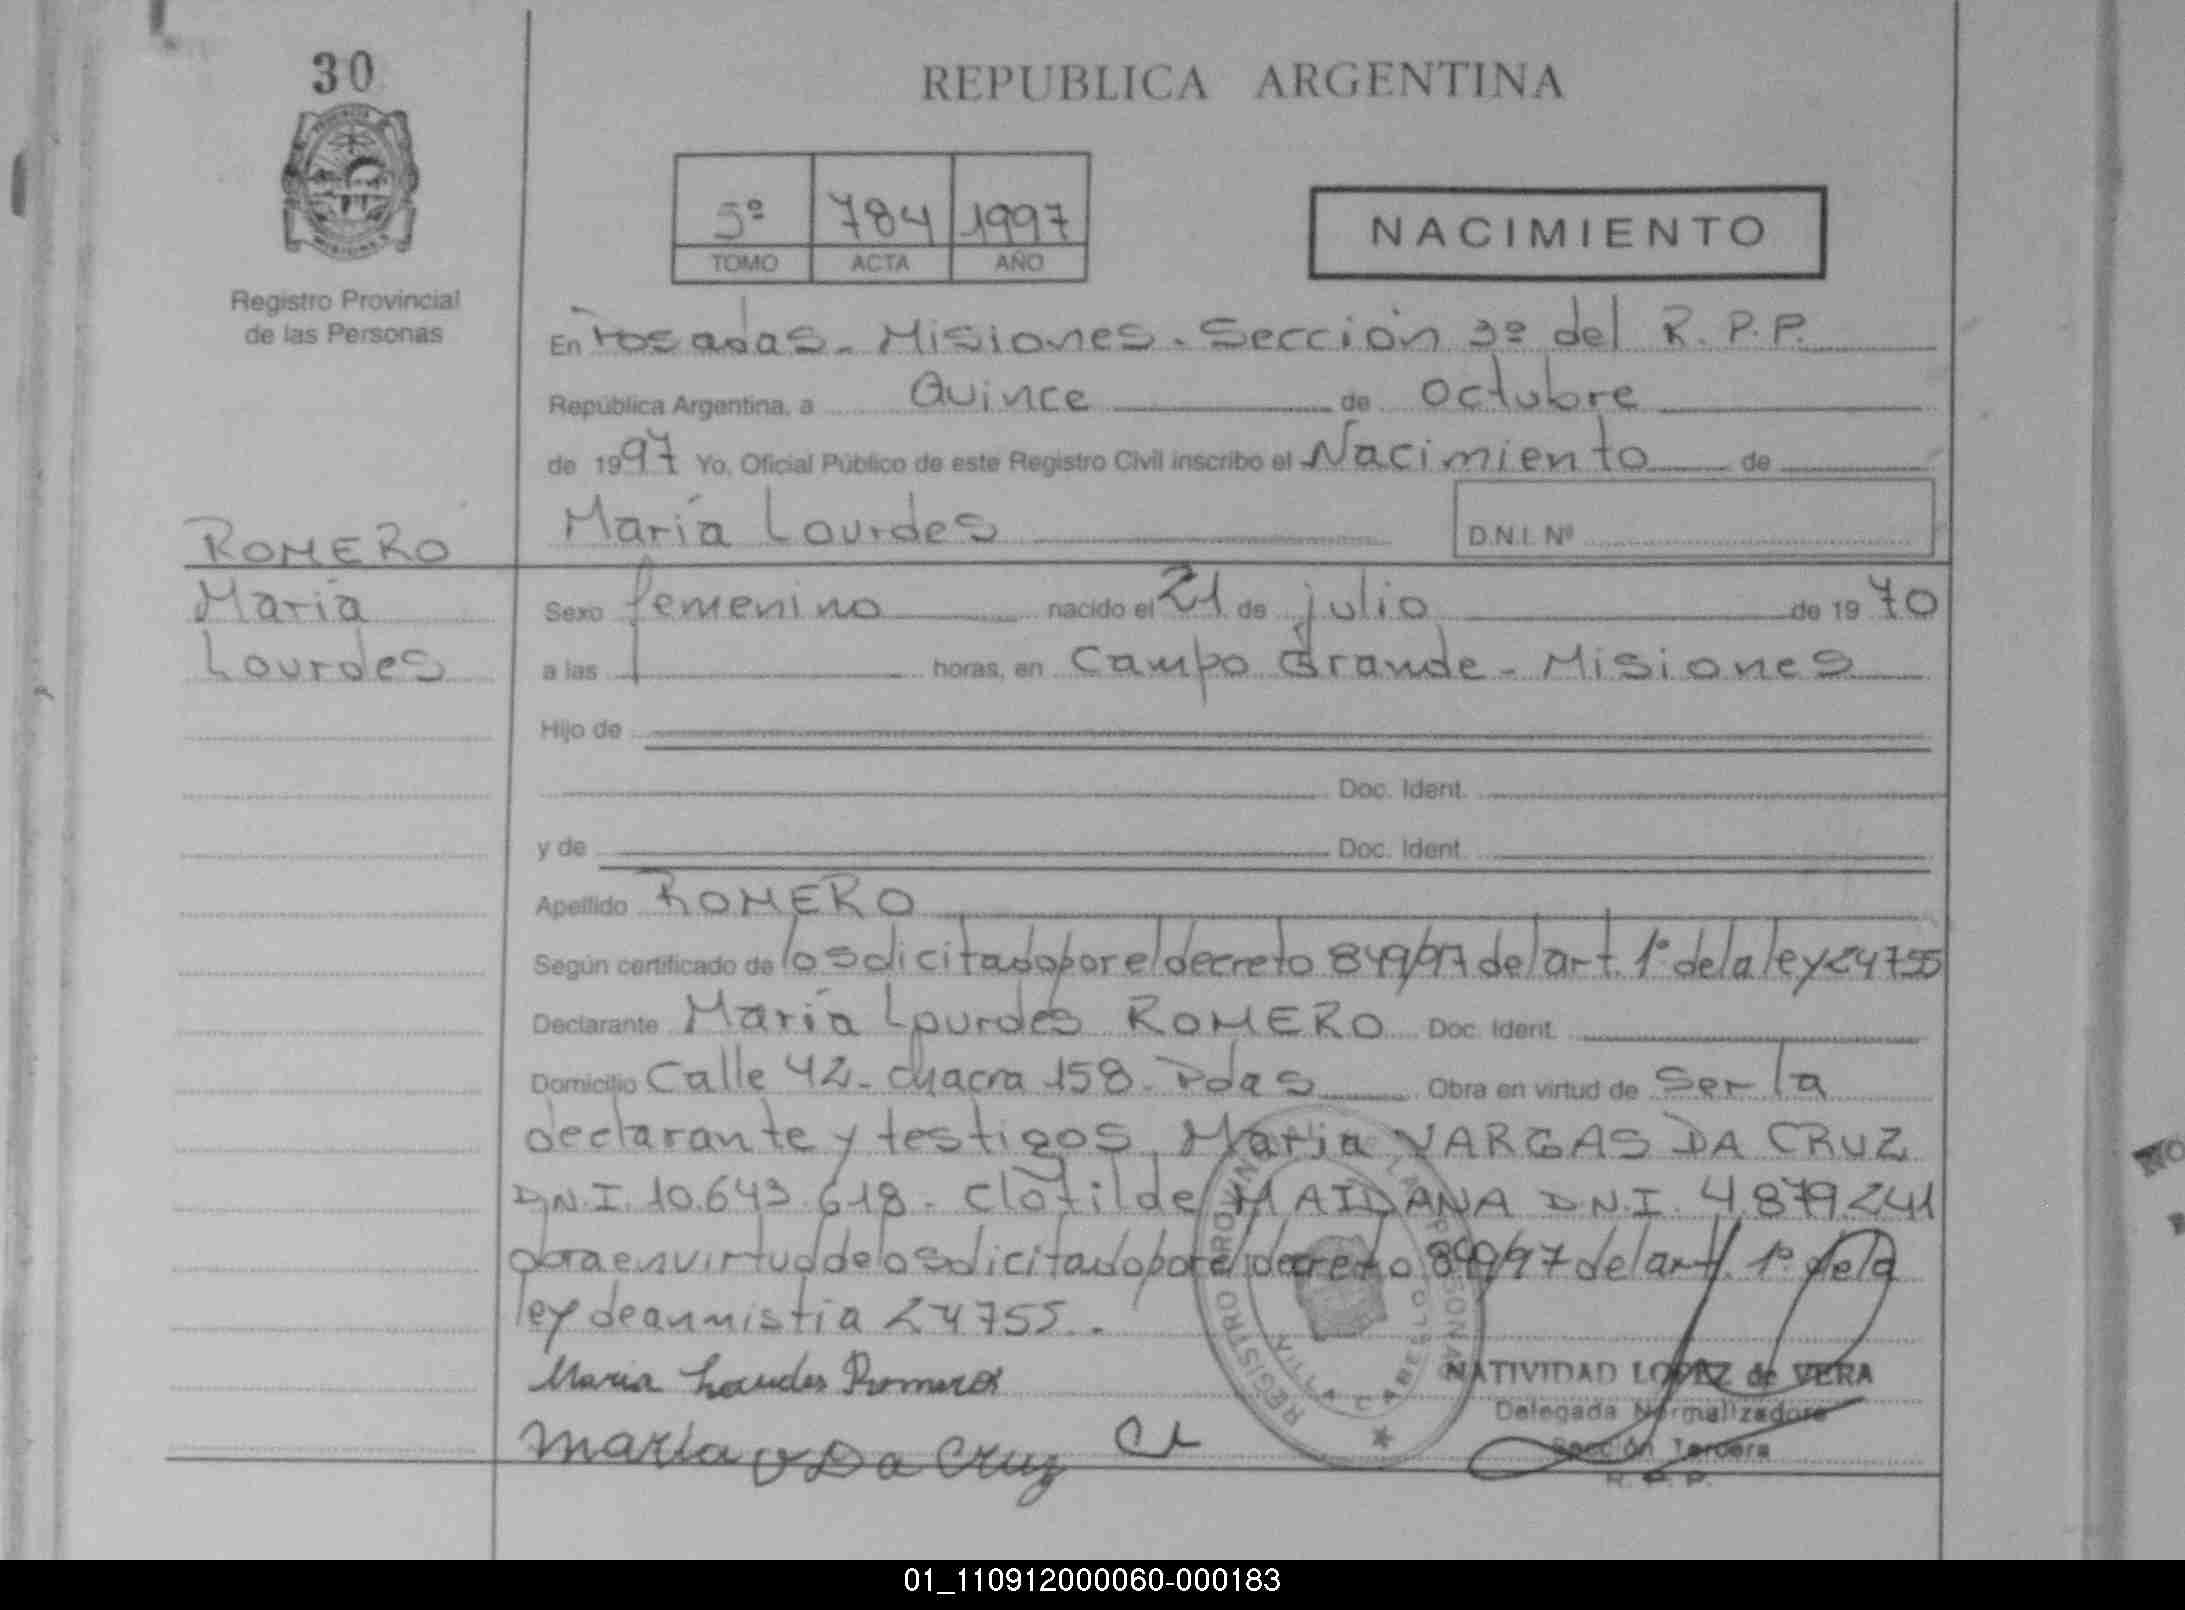 30
REPUBLICA ARGENTINA
5º 784 1997
TOMO ACTA AÑO
NACIMIENTO
Registro Provincial
de las Personas
En Posadas - Misiones - Sección 3º del R. P. P.
República Argentina, a Quince de octubre
de 1997 Yo, Oficial Público de este Registro Civil inscribo el Nacimiento de
María Lourdes D.N.I. Nº
ROMERO
María
Lourdes
Sexo femenino nacido el 21 de julio de 1970
a las horas, en Campo Grande - Misiones
Hijo de
Doc. Ident.
y de Doc. Ident.
Apellido ROMERO
Según certificado de lo solicitado por el decreto 849/97 del art. 1º de la ley 24755
Declarante María Lourdes ROMERO Doc. Ident.
Domicilio Calle 42 - chacra 158 - Pdas Obra en virtud de ser la
declarante y testigos María VARGAS DA CRUZ
D.N.I. 10.643.618 - Clotilde MAIDANA D.N.I. 4.879.241
obra en virtud de lo solicitado por el decreto 849/97 del art. 1º de la
ley de amnistia 24755.
Maria Lourdes Romero
Maria v Da Cruz
REGISTRO PROVINCIAL DE LAS PERSONAS
VILLA CABELLO
NATIVIDAD LOPEZ de VERA
Delegada Normalizadora
Sección Tercera
R. P. P.
01_110912000060-000183